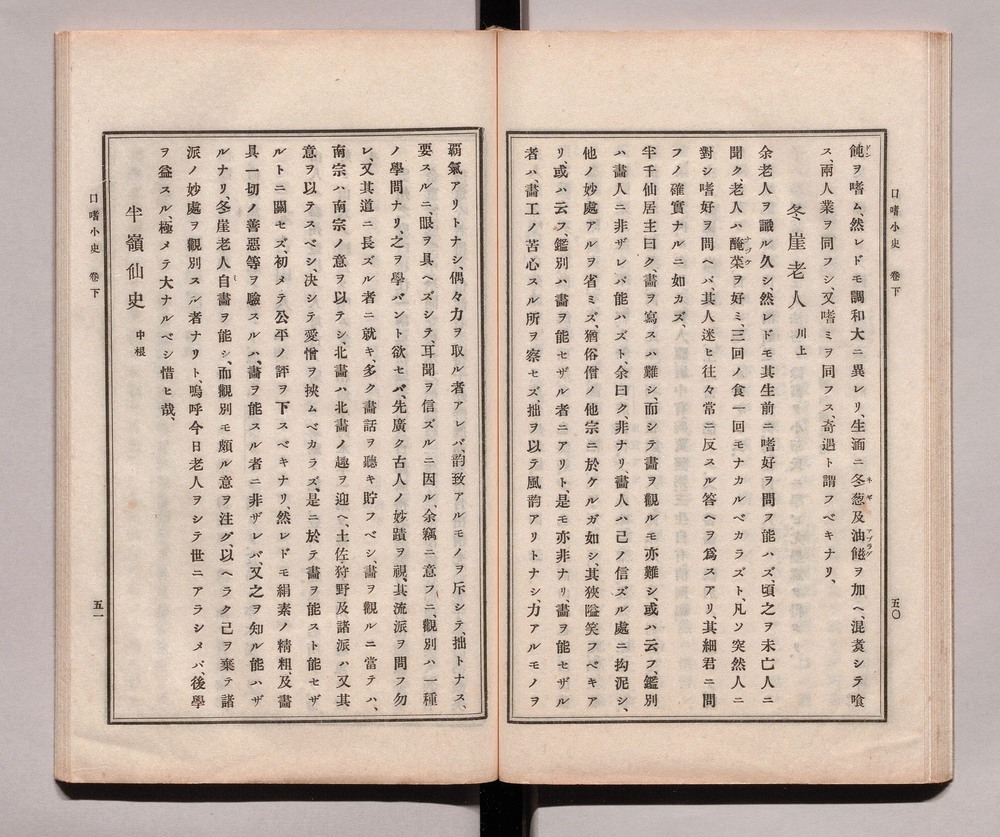 口嗜小史　卷下
五〇
飩ヲ嗜ム、然レドモ調和大ニ異レリ、生湎ニ冬葱及油䭔ヲ加ヘ、混煑シテ喰
ス、兩人業ヲ同フシ、又嗜ミヲ同フス、奇遇ト謂フベキナリ、
冬崖老人　川上
余老人ヲ識ル久シ、然レドモ其生前ニ嗜好ヲ問フ能ハズ、頃之ヲ未亡人ニ
聞ク、老人ハ醃菜ヲ好ミ、三回ノ食一回モナカルベカラズト、凡ソ突然人ニ
對シ嗜好ヲ問ヘバ、其人迷ヒ往々常ニ反スル答ヘヲ爲スアリ、其細君ニ問
フノ確實ナルニ如カズ、
半千仙居主曰ク、畵ヲ寫スハ難シ、而シテ畵ヲ觀ルモ亦難シ、或ハ云フ、鑑別
ハ畵人ニ非ザレバ能ハズト、余曰ク、非ナリ、畵人ハ己ノ信ズル處ニ拘泥シ、
他ノ妙處アルヲ省ミズ、猶俗僧ノ他宗ニ於ケルガ如シ、其狹隘笑フベキア
リ、或ハ云フ、鑑別ハ畵ヲ能セザル者ニアリト、是モ亦非ナリ、畵ヲ能セザル
者ハ、畵工ノ苦心スル所ヲ察セズ、拙ヲ以テ風韵アリトナシ、力アルモノヲ
覇氣アリトナシ、偶々力ヲ取ル者アレバ、韵致アルモノヲ斥シテ、拙トナス、
要スルニ、眼ヲ具ヘズシテ、耳聞ヲ信ズルニ因ル、余竊ニ意フニ、觀別ハ一種
ノ學問ナリ、之ヲ學バント欲セバ、先廣ク古人ノ妙蹟ヲ視、其流派ヲ問フ勿
レ、又其道ニ長ズル者ニ就キ、多ク畵話ヲ聽キ貯フベシ、畵ヲ觀ルニ當テハ、
南宗ハ南宗ノ意ヲ以テシ、北畵ハ北畵ノ趣ヲ迎ヘ、土佐狩野及諸派ハ又其
意ヲ以テスベシ、决シテ愛憎ヲ挾ムベカラズ、是ニ於テ畵ヲ能スト能セザ
ルトニ關セズ、初メテ公平ノ評ヲ下スベキナリ、然レドモ絹素ノ精粗、及畵
具一切ノ善惡等ヲ驗スルハ、畵ヲ能スル者ニ非ザレバ、又之ヲ知ル能ハザ
ルナリ、冬崖老人自畵ヲ能シ、而觀別モ頗ル意ヲ注グ、以ヘラク己ヲ棄テ諸
派ノ妙處ヲ觀別スル者ナリト、嗚呼今日老人ヲシテ世ニアラシメバ、後學
ヲ益スル、極メテ大ナルベシ惜ヒ哉、
半嶺仙史　中根
口嗜小史　卷下
五一